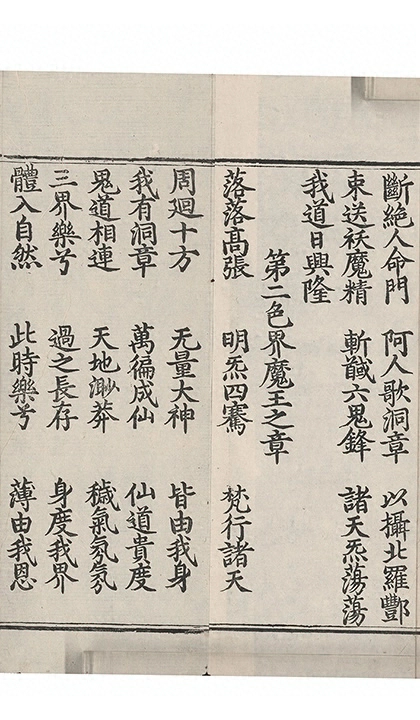 斷絶人命門 阿人歌洞章 以攝北羅酆
束送祅魔精 斬馘六鬼鋒 諸天炁蕩蕩
我道日興隆
第二色界魔王之章
落落髙張 明炁四騫 梵行諸天
周迴十方 无量大神 皆由我身
我有洞章 萬徧成仙 仙道貴度
鬼道相連 天地渺莽 穢氣氛氛
三界樂兮 過之長存 身度我界
體入自然 此時樂兮 薄由我恩